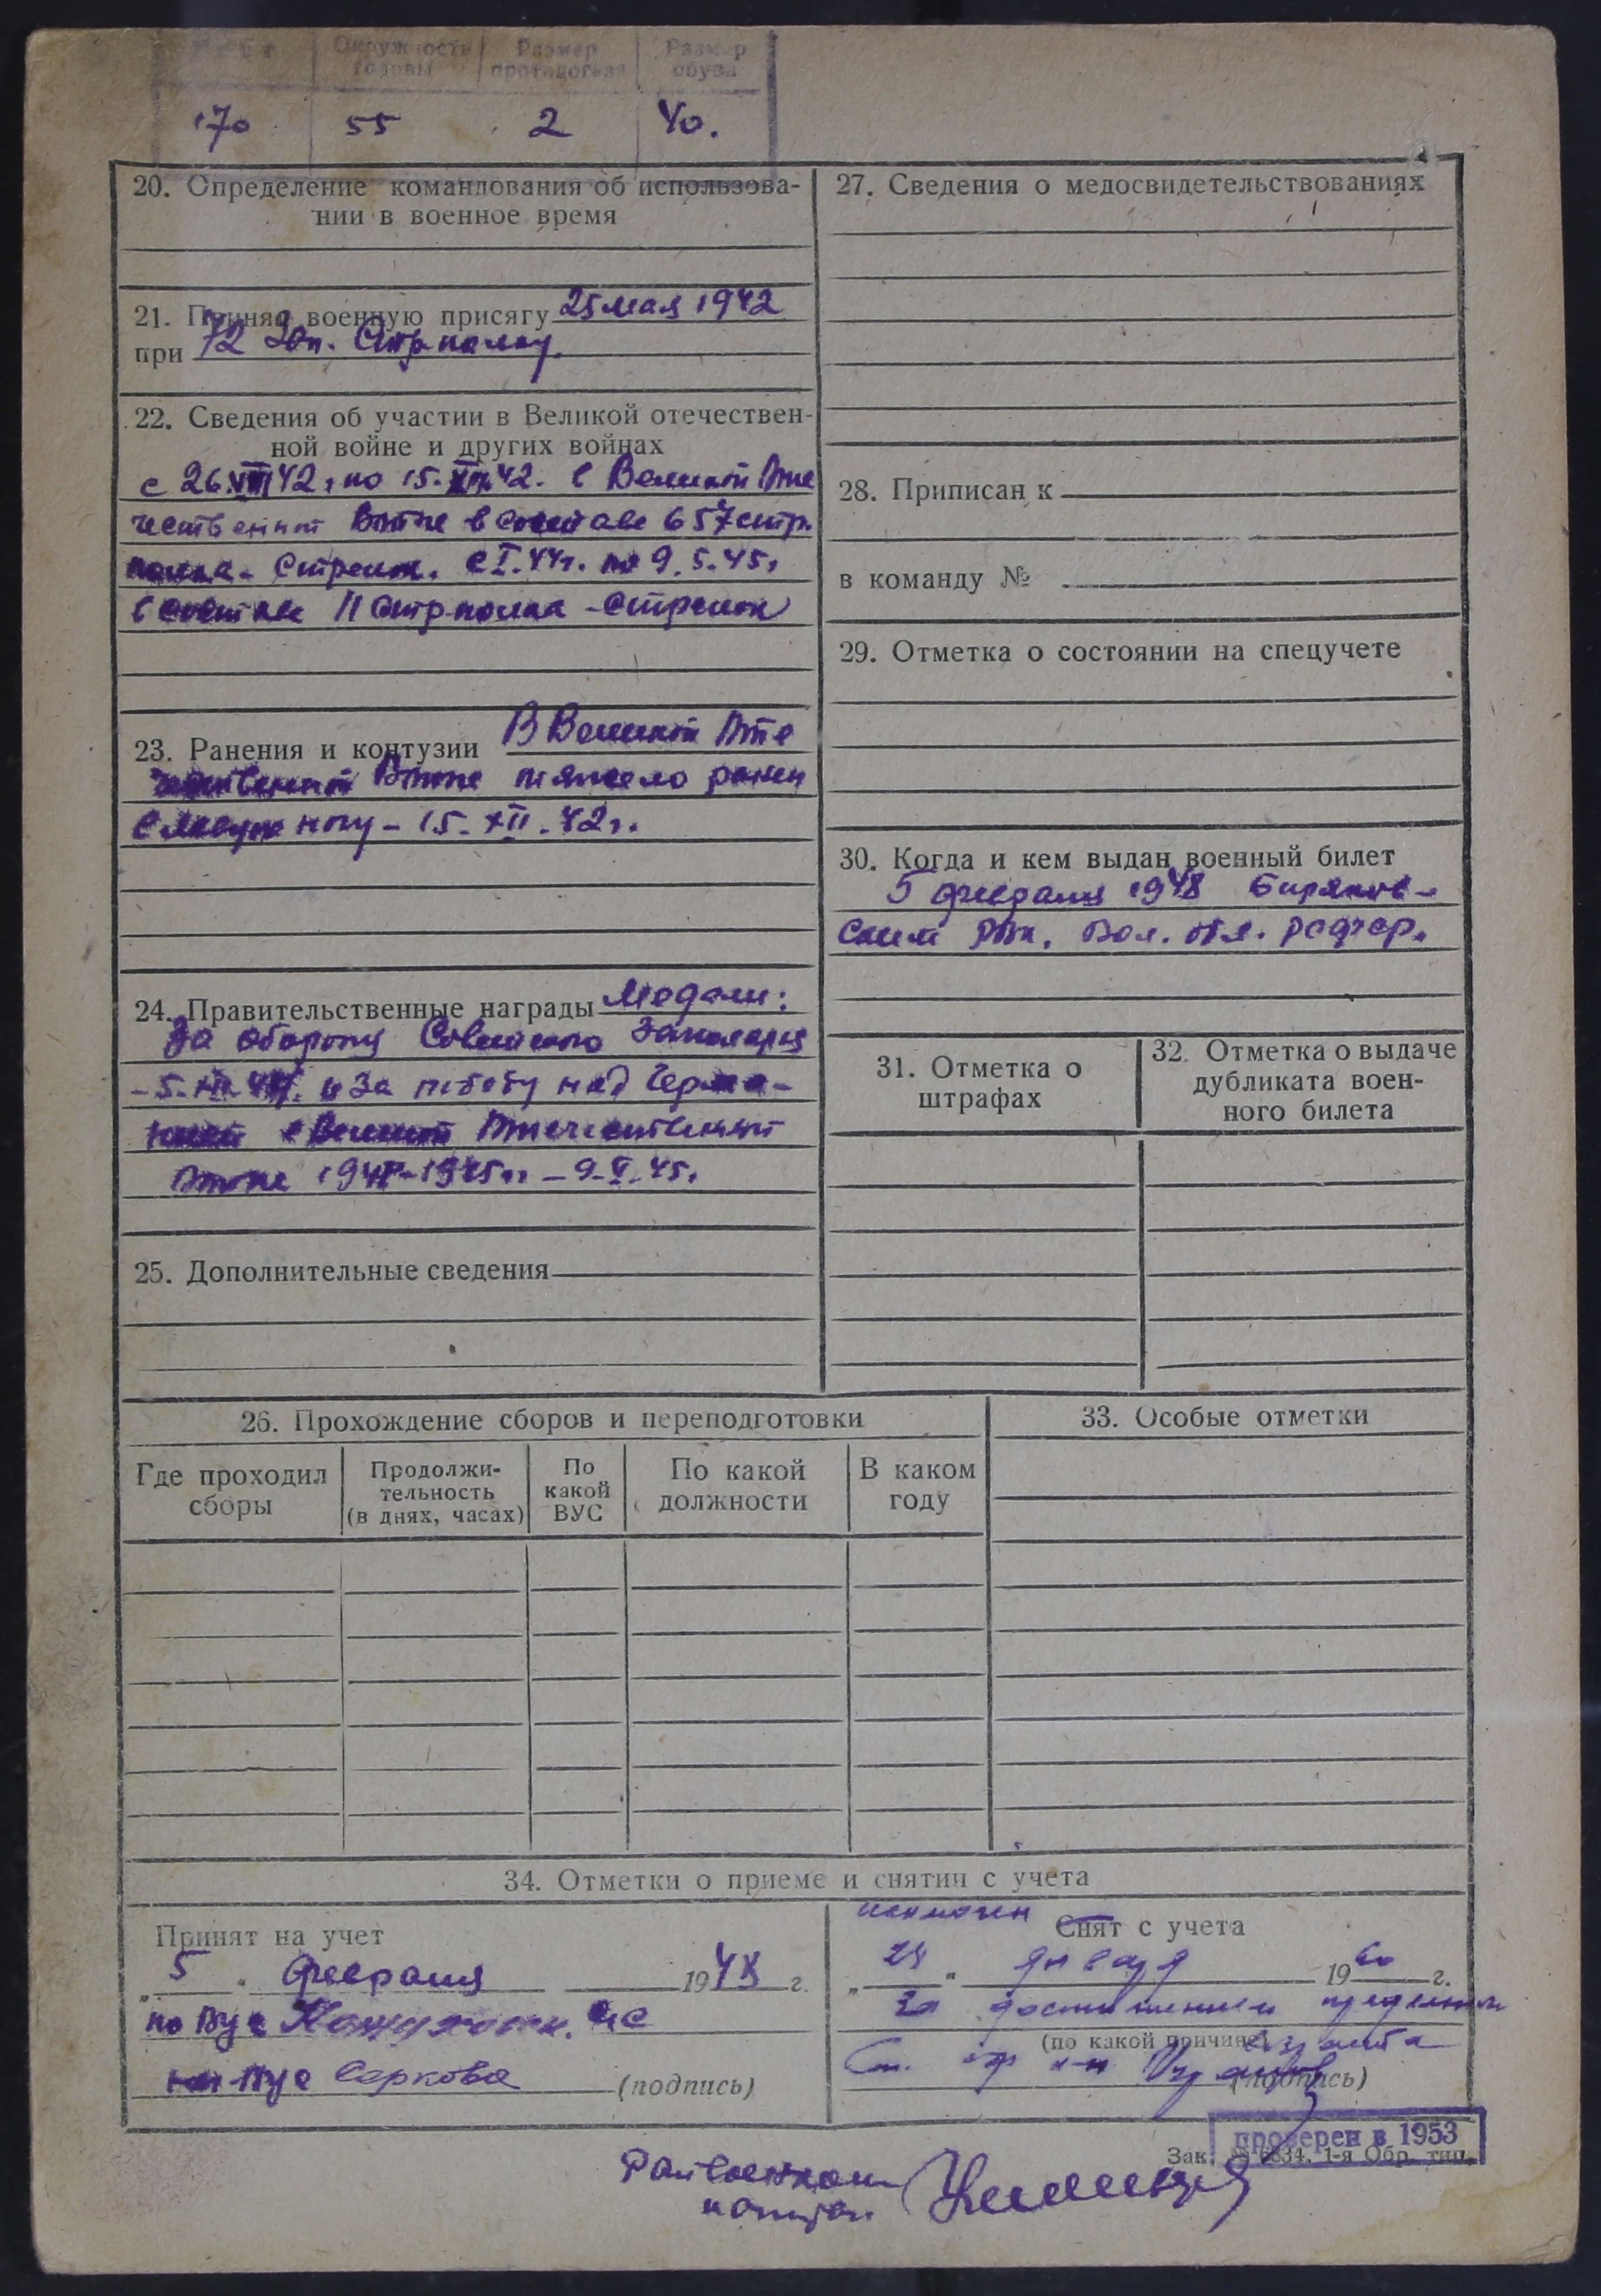 Рост Окружность головы Размер противогаза Размер обуви
170 55 2 40.
20. Определение командования об использова-
нии в военное время
21. Принял военную присягу 25 мая 1942
при 72 Зап. Стр. полку.
22. Сведения об участии в Великой отечествен-
ной войне и других войнах
с 26.VIII 42г. по 15.XII.42. в Великой Оте
чественной Войне в составе 657 стр.
полка - Стрелок. с I.44г. по 9.5.45г
в составе 11 стр. полка - стрелок
23. Ранения и контузии В Великой Оте
чественной Войне тяжело ранен
в левую ногу - 15.XII.42г.
24. Правительственные награды Медали:
За оборону Советского Заполярья
-5. 44. и За победу над Герма-
нией в Великой Отечественной
Войне 1941-1945гг - 9.V.45г.
25. Дополнительные сведения
26. Прохождение сборов и переподготовки
Где проходил сборы
Продолжи-
тельность
(в днях, часах)
По какой ВУС
По какой должности
В каком году
27. Сведения о медосвидетельствованиях
28. Приписан к
в команду №
29. Отметка о состоянии на спецучете
30. Когда и кем выдан военный билет
5 февраля 1948 Биряков-
ским РВК. Вол. обл.
31. Отметка о
штрафах
32. Отметка о выдаче
дубликата воен-
ного билета
33. Особые отметки
34. Отметки о приеме и снятии с учета
Принят на учет
"5" февраля 1948 г.
Серкова (подпись)
исключен Снят с учета
" " января 1960 г.
За достижением предельн
(по какой причине) возраста
Ст. (подпись)
проверен в 1953
Зак. № 6834. 1-я Обр. тип.
Райвоенком